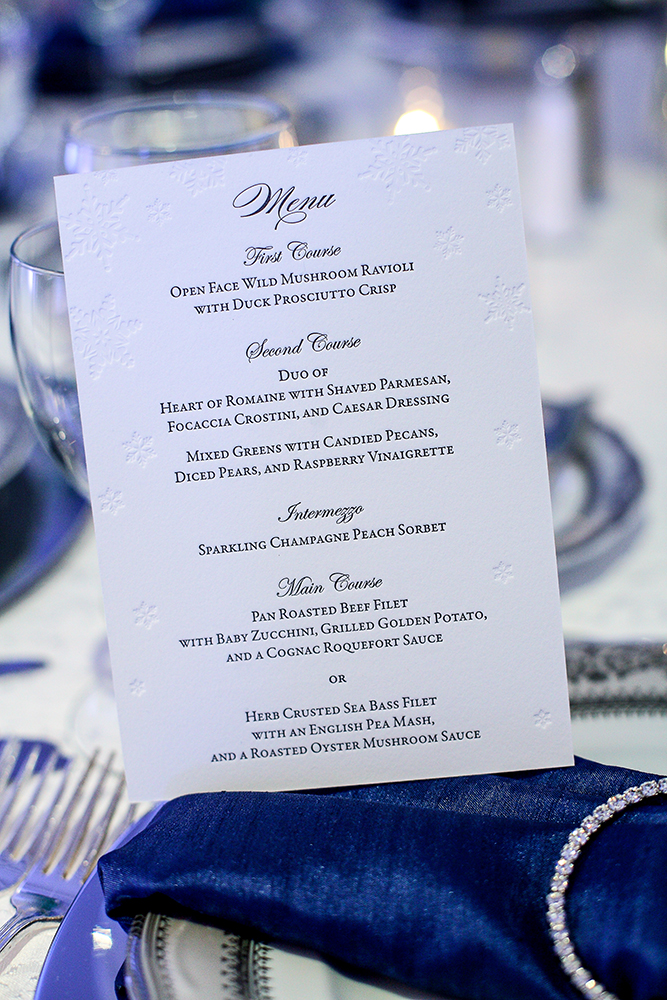 Menu
First Course
Open Face Wild Mushroom Ravioli
with Duck Prosciutto Crisp
Second Course
Duo of
Heart of Romaine with Shaved Parmesan,
Focaccia Crostini, and Caesar Dressing
Mixed Greens with Candied Pecans,
Diced Pears, and Raspberry Vinaigrette
Intermezzo
Sparkling Champagne Peach Sorbet
Main Course
Pan Roasted Beef Filet
with Baby Zucchini, Grilled Golden Potato,
and a Cognac Roquefort Sauce
or
Herb Crusted Sea Bass Filet
with an English Pea Mash,
and a Roasted Oyster Mushroom Sauce